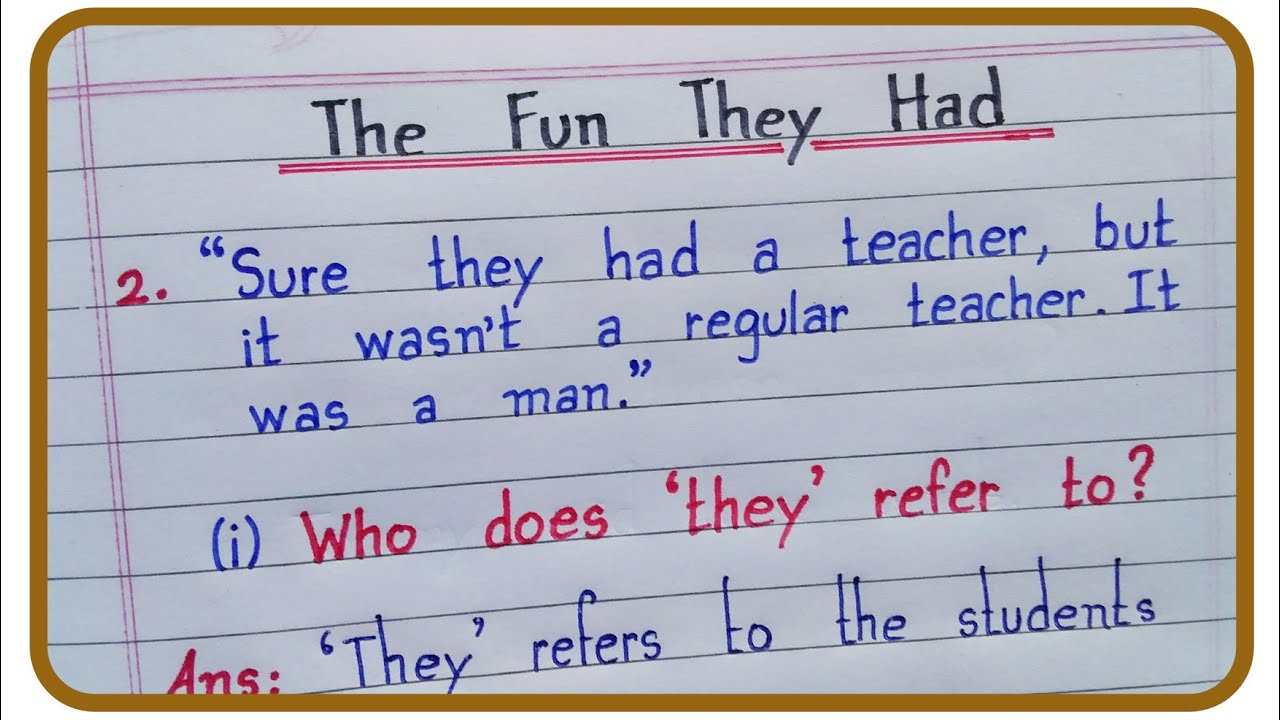 The Fun They Had
2. “Sure they had a teacher, but
it wasn't a regular teacher. It
was a man.”
(i) Who does ‘they’ refer to?
Ans: ‘They’ refers to the students